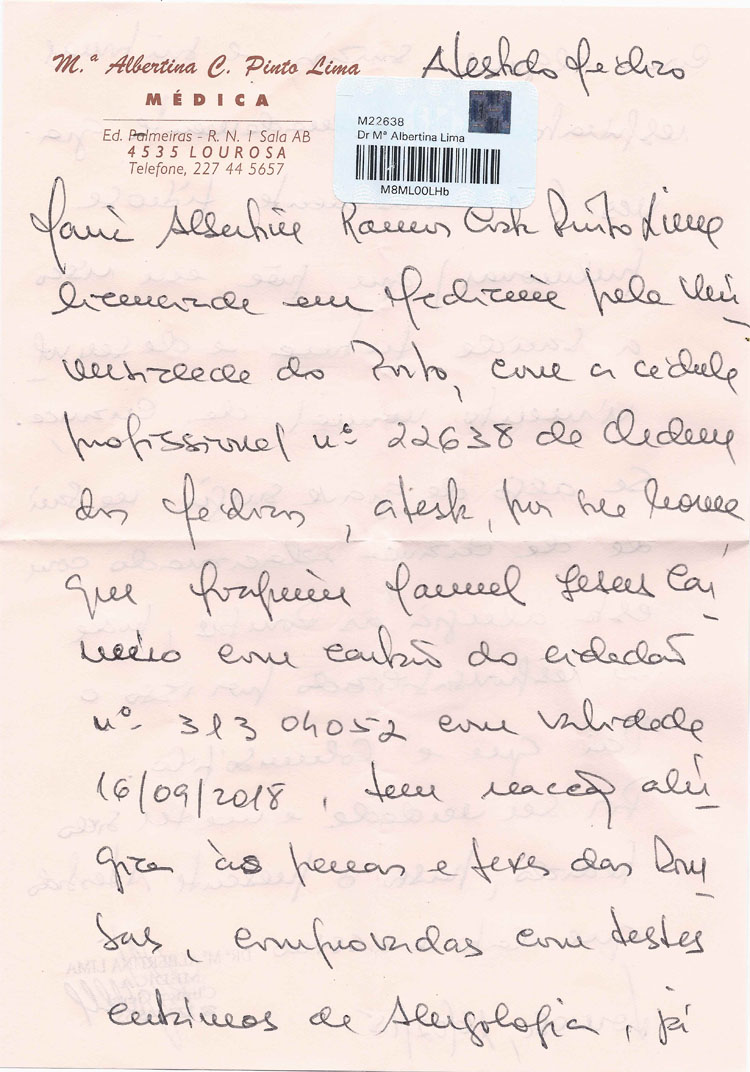 M.ª Albertina C. Pinto Lima
MÉDICA
Ed. Palmeiras - R. N. 1 Sala AB
4535 LOUROSA
Telefone, 227 44 5657
Atestado Médico
M22638
Dr Mª Albertina Lima
M8ML00LHb
Maria Albertina Ramos Costa Pinto Lima
licenciada em Medicina pela Uni-
versidade do Porto, com a cédula
profissional nº 22638 da Ordem
dos Médicos, atesta, por sua honra,
que Joaquim Manuel Jesus
com cartão do cidadão
nº 313 04052 com validade
16/09/2018, tem reacção alér-
gica às penas e fezes das Pom-
bas, comprovadas com testes
cutâneos de Alergologia, já